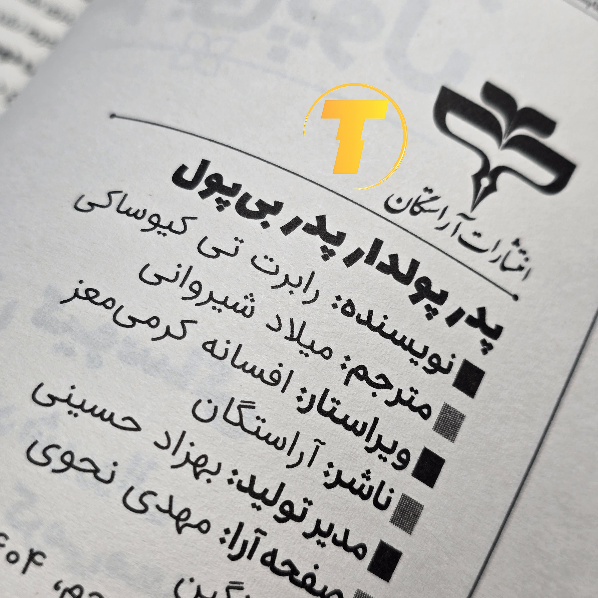 انتشارات آراستگان
T
پدر پولدار پدر بی‌پول
نویسنده: رابرت تی کیوساکی
مترجم: میلاد شیروانی
ویراستار: افسانه کرمی‌معز
ناشر: آراستگان
مدیر تولید: بهزاد حسینی
صفحه‌آرا: مهدی نحوی